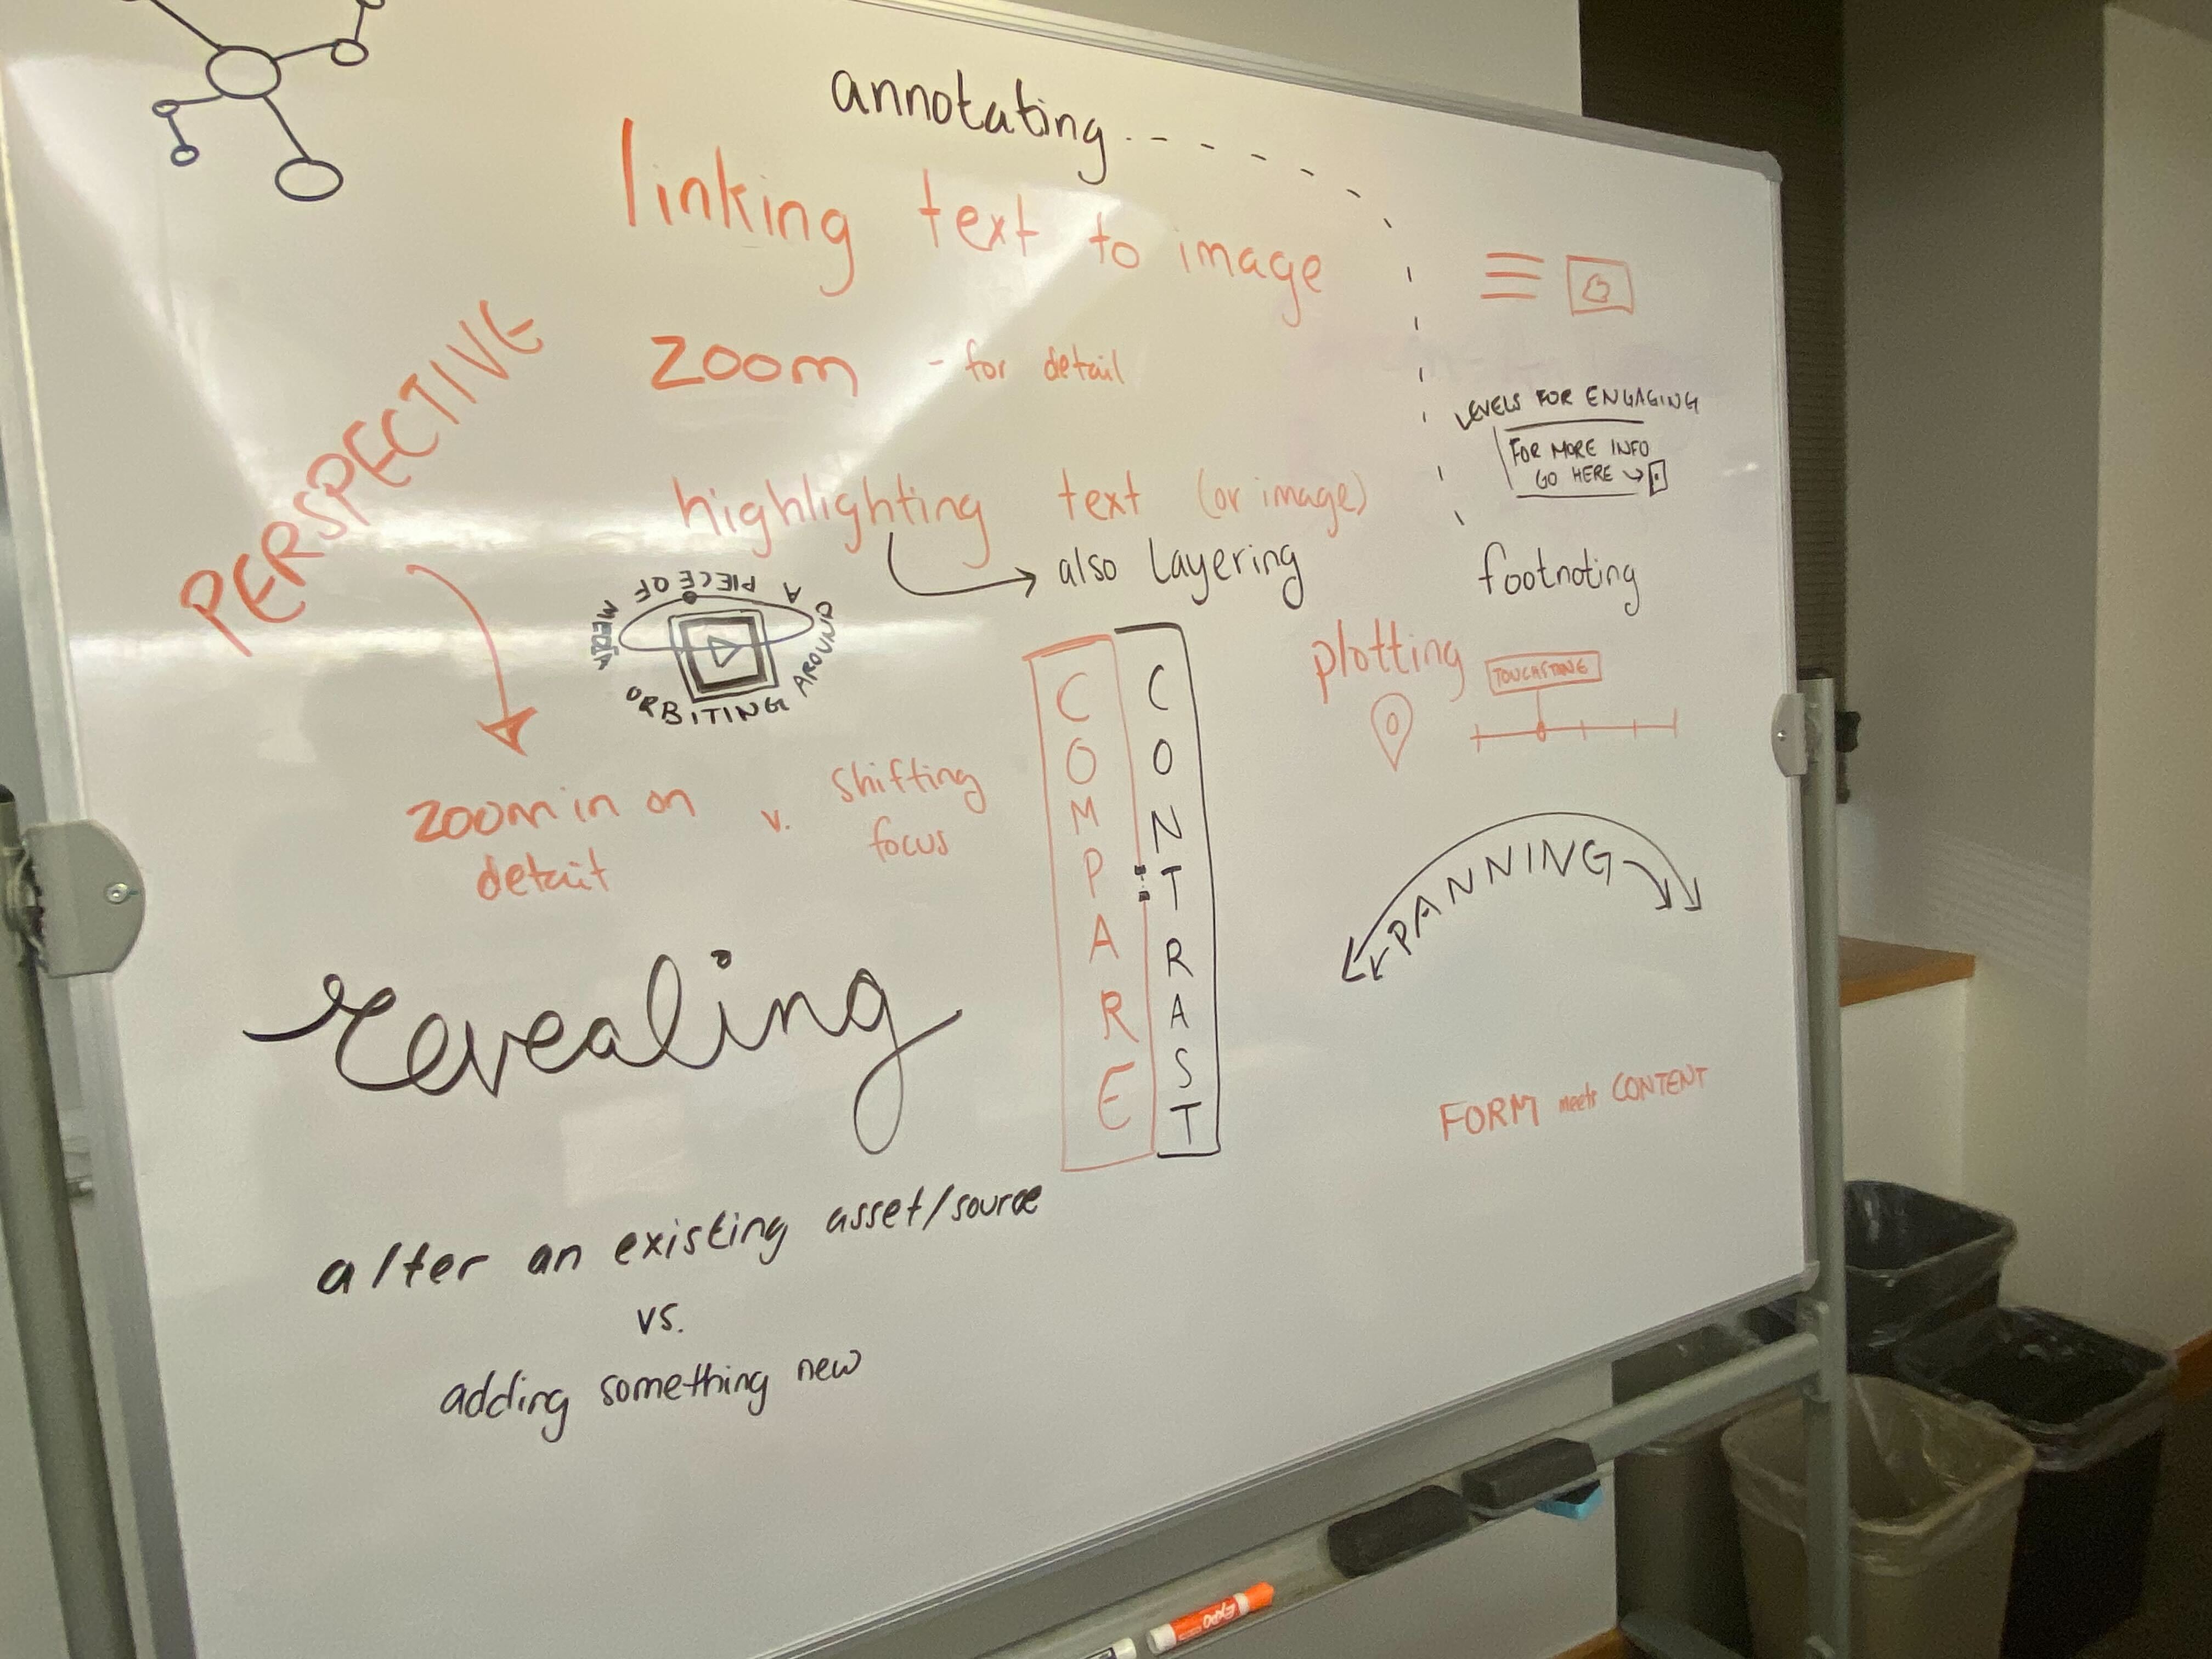 annotating
linking text to image
zoom - for detail
PERSPECTIVE
LEVELS FOR ENGAGING
FOR MORE INFO
GO HERE →
highlighting text (or image)
also layering
footnoting
ORBITING AROUND A PIECE OF MEDIA
plotting
zoom in on
detail
v.
shifting
focus
COMPARE
CONTRAST
PANNING
revealing
FORM meets CONTENT
alter an existing asset/source
vs.
adding something new
EXPO